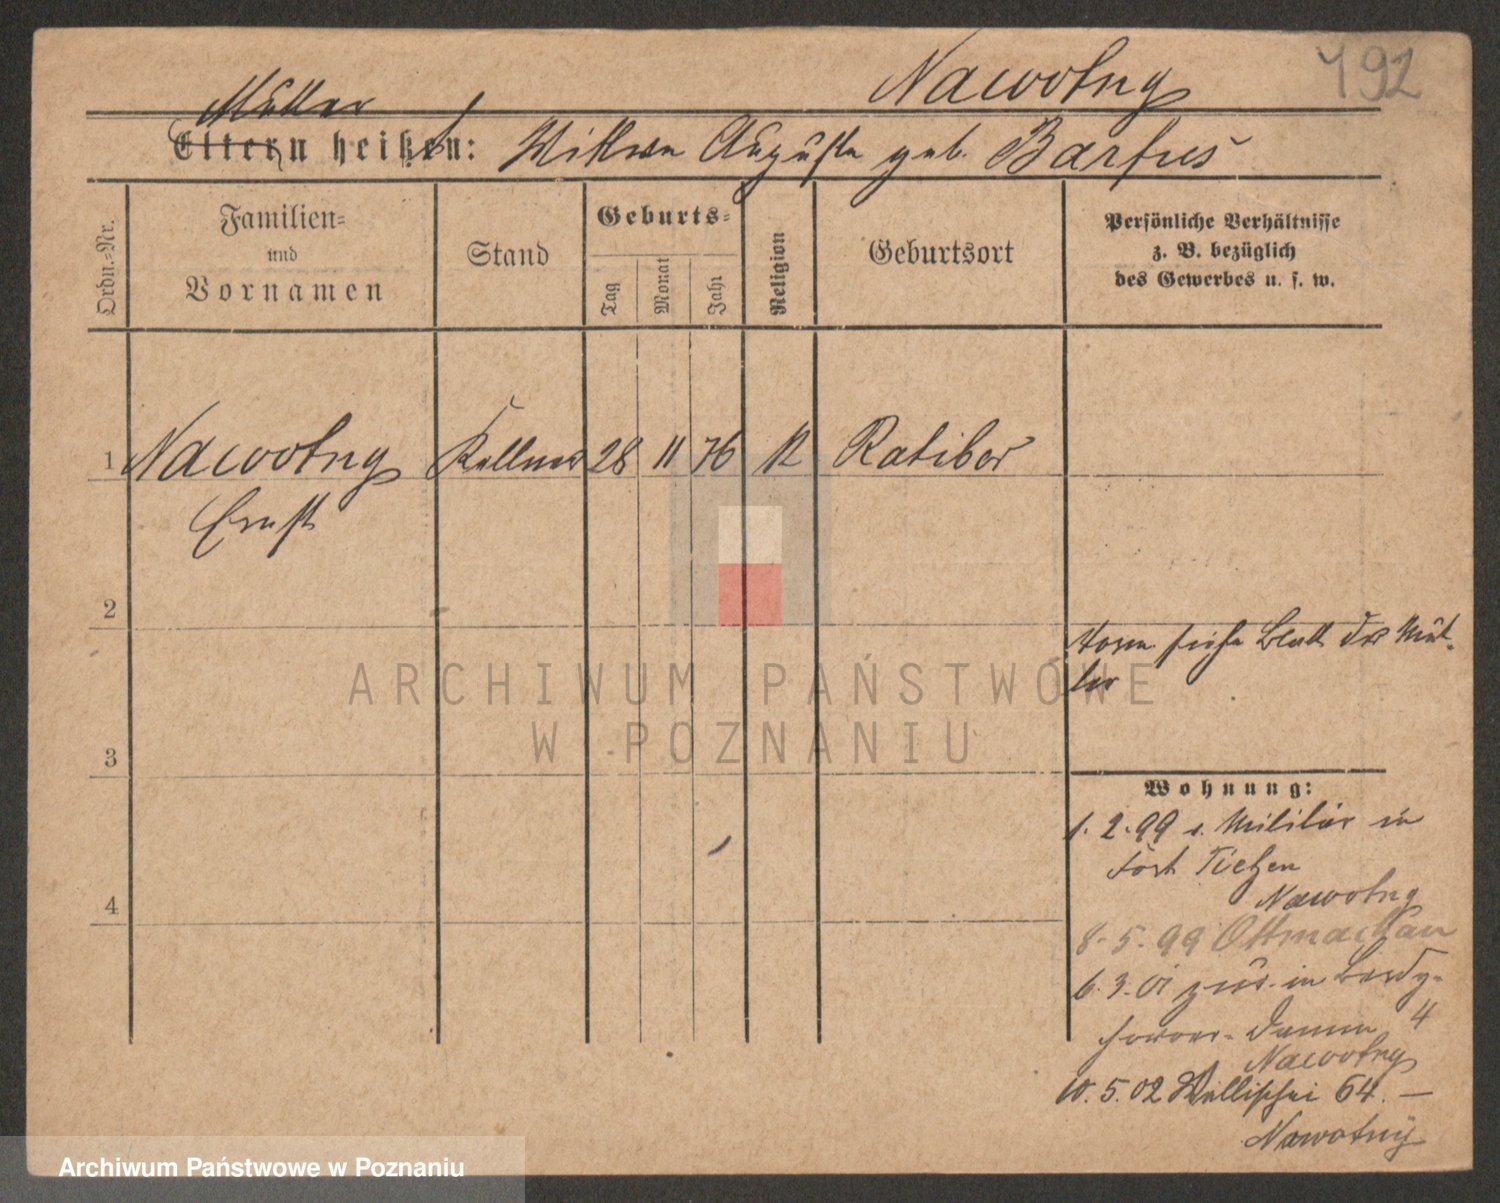 Nawotny
192
Mutter
Eltern heißen: Wittwe Auguste geb. Barfus
Ordn.=Nr.
Familien=
und
Vornamen
Stand
Geburts=
Tag
Monat
Jahr
Religion
Geburtsort
Persönliche Verhältnisse
z. B. bezüglich
des Gewerbes u. s. w.
1 Nawotny Kellner 28 11 76 K Ratibor
Ernst
2
vorm siehe Blatt der Mut-
ter
3
Wohnung:
1. 2. 99 z. Militär in
Fort Tietzen
Nawotny
4
8. 5. 99 Ottmachau
6. 3. 01 zur. in
Damm 4
Nawotny
10. 5. 02 Wallischei 64. —
Nawotny
ARCHIWUM PAŃSTWOWE
W POZNANIU
Archiwum Państwowe w Poznaniu